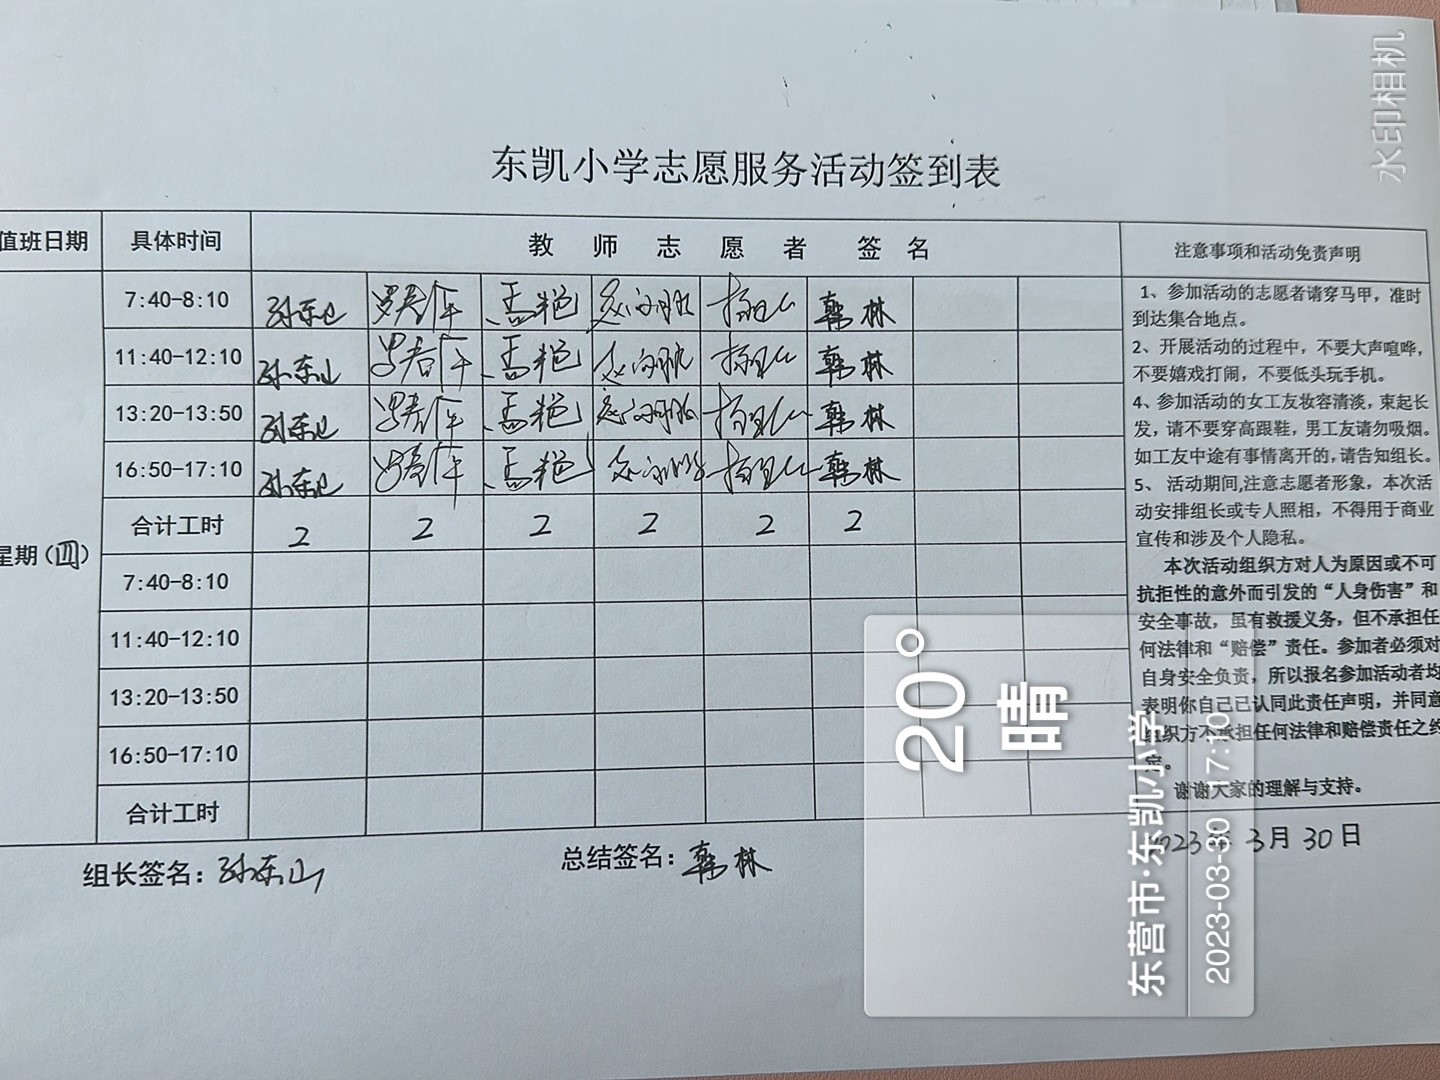 水印相机
东凯小学志愿服务活动签到表
值班日期 具体时间 教师志愿者签名 注意事项和活动免责声明
7:40-8:10 孙东山 孟艳 韩林
11:40-12:10 孙东山 孟艳 韩林
13:20-13:50 孙东山 孟艳 韩林
16:50-17:10 孙东山 孟艳 韩林
合计工时 2 2 2 2 2 2
星期(四)
7:40-8:10
11:40-12:10
13:20-13:50
16:50-17:10
合计工时
1、参加活动的志愿者请穿马甲，准时
到达集合地点。
2、开展活动的过程中，不要大声喧哗，
不要嬉戏打闹，不要低头玩手机。
4、参加活动的女工友妆容清淡，束起长
发，请不要穿高跟鞋，男工友请勿吸烟。
如工友中途有事情离开的,请告知组长。
5、 活动期间,注意志愿者形象，本次活
动安排组长或专人照相，不得用于商业
宣传和涉及个人隐私。
本次活动组织方对人为原因或不可
抗拒性的意外而引发的“人身伤害”和
安全事故，虽有救援义务，但不承担任
何法律和“赔偿”责任。参加者必须对
自身安全负责，所以报名参加活动者均
表明你自己已认同此责任声明，并同意
组织方不承担任何法律和赔偿责任之约
定。
谢谢大家的理解与支持。
组长签名：孙东山 总结签名：韩林 2023年 3月 30日
20°
晴
东营市·东凯小学
2023-03-30 17:10